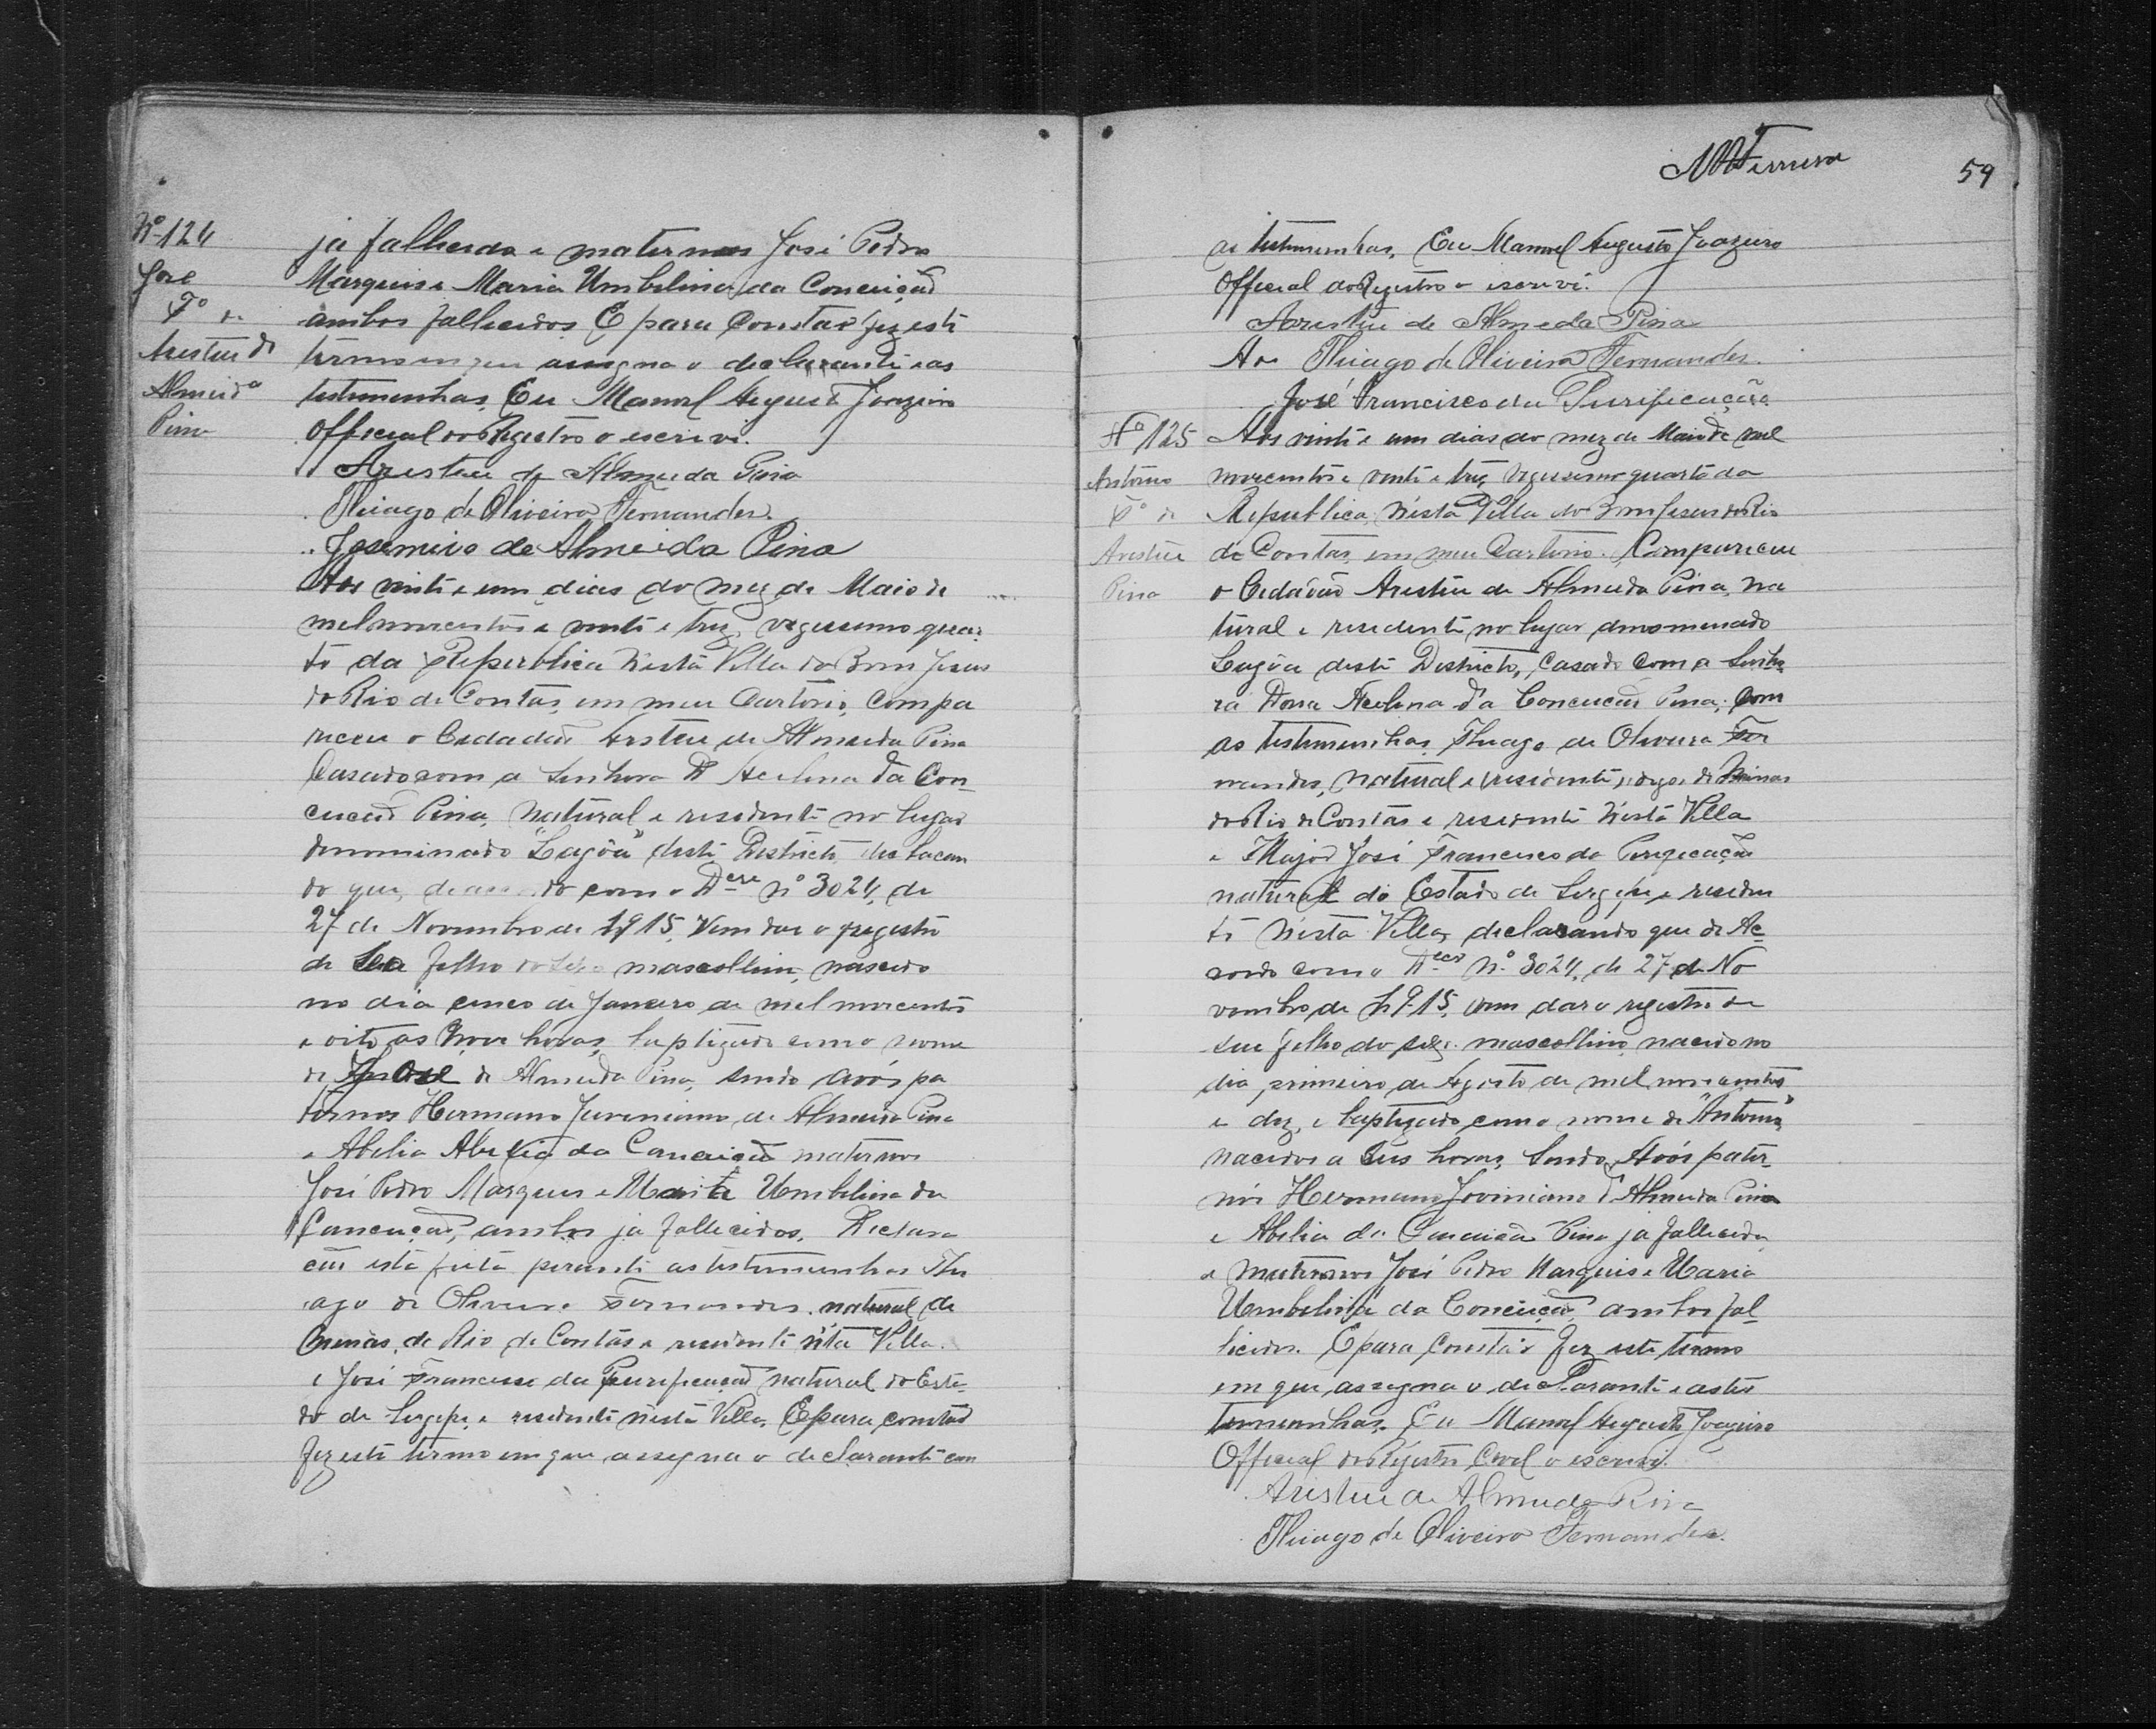 Nº 124
José
Fº de
Aristeu de
Almeida
Pina
ja fallecida e maternos José Pedro
Marques e Maria Umbelina da Conceição
ambos fallecidos E para constar fez este
termo em que assigna o declarante e as
testimunhas, Eu Manoel Augusto Joazeiro
Official do Registro o escrivi.
Aristeu de Almeida Pina
Thiago de Oliveira Fernandes.
Josemiro de Almeida Pina
Aos vinte e um dias do mez de Maio de
mil novecentos e vinte e trez, vigessimo quar-
to da Republica n'esta Villa do Bom Jesus
do Rio de Contas, em meu Cartorio, compa
receu o Cidadão Aristeu de Almeida Pina
Casado com a Senhora D. Acelina da Con_
ceição Pina, natural e residente no lugar
denominado "Lagôa" deste Districto declaran
do que, de accordo com o Decre nº 3024, de
27 de Novembro de 1915, vem dar o registro
de seu filho do sexo mascollino, nascido
no dia cinco de Janeiro de mil novecentos
e oito, as nove horas, baptizado com o nome
de José de Almeida Pina, sendo avós pa
ternos Hermano Juveniano de Almeida Pina
e Abelia da Conceição maternos
José Pedro Marques e Maria Umbelina da
Conceição, ambos ja fallecidos. Declara
ção esta feita perante as testimunhas Thi
ago de Oliveira Fernandes, natural de
Minas, do Rio de Contas e residente n'sta Villa
e José Francisco da Purificação natural do Esta-
do de Sergipe, e residente nésta Villa, E para constar
fez este termo em que assigna o declarante com
Ferreira
59
as testimunhas, Eu Manoel Augusto Joazeiro
Official do Registro o escrivi.
Aristeu de Almeida Pina
Thiago de Oliveira Fernandes.
José Francisco da Purificação
Nº 125
Antonio
Fº de
Aristeu
Pina
Aos vinte e um dias do mez de Maio de mil
novecentos e vinte e trez, vigessimo quarto da
Republica, n'esta Villa do Bom Jesus do Rio
de Contas, em meu Cartorio. Compareceu
o Cidadão Aristeu de Almeida Pina, na
tural e residente no lugar denomenado
Lagôa deste Districto, Casado com a Senho
ra Dona Acelina da Conceição Pina, com
as testimunhas, Thiago de Oliveira Fer
nandes, natural e residente, digo, de Minas
do Rio de Contas e residente n'esta Villa
e Major José Francisco da Purificação
natural do Estado de Sergipe e residen
te nésta Villa, declarando que de Ac_
cordo com o Decr nº 3024, de 27 de No
vembro de 1915, vem dar o registro de
seu filho do sexo mascollino nacido no
dia primeiro de Agosto de mil novecentos
e dez, e baptizado com o nome de "Antonio"
nacidos a seis horas, Sendo Avós pater_
nos Hermano Joviniano d'Almeida Pina
e Abelia da Conceição Pina ja fallecida
e maternos José Pedro Marques e Maria
Umbelina da Conceição, ambos fal_
licidos. E para constar fez este termo
em que assegna o declarante e as tes
temunhas. Eu Manoel Augusto Joazeiro
Official do Rejistro Civil o escrivi.
Aristeu de Almeida Pina
Thiago de Oliveira Fernandes.